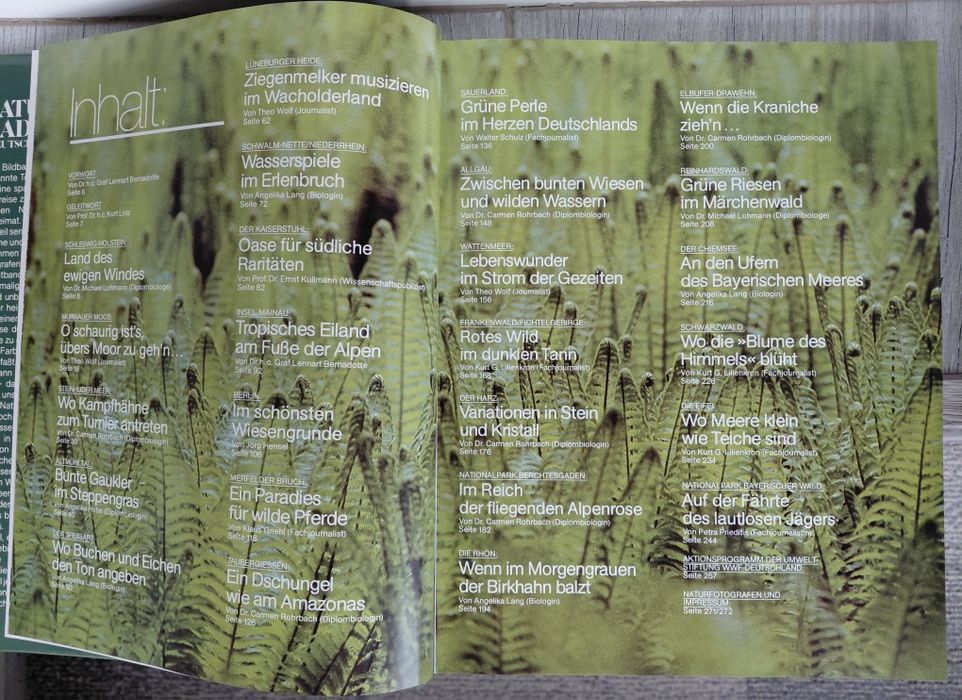 Inhalt:
VORWORT
Von Dr. h. c. Graf Lennart Bernadotte
Seite 6
GELEITWORT
Von Prof. Dr. h. c. Kurt Lotz
Seite 7
SCHLESWIG-HOLSTEIN:
Land des
ewigen Windes
Von Dr. Michael Lohmann (Diplombiologe)
Seite 8
MURNAUER MOOS:
O schaurig ist's,
übers Moor zu geh'n...
Von Theo Wolf (Journalist)
Seite 18
STEINHUDER MEER:
Wo Kampfhähne
zum Turnier antreten
Von Dr. Carmen Rohrbach (Diplombiologin)
Seite 30
ALTMÜHLTAL:
Bunte Gaukler
im Steppengras
Von Angelika Hofer (Diplombiologin)
DER SPESSART:
Wo Buchen und Eichen
den Ton angeben
Von Angelika Lang (Biologin)
LÜNEBURGER HEIDE:
Ziegenmelker musizieren
im Wacholderland
Von Theo Wolf (Journalist)
Seite 62
SCHWALM-NETTE/NIEDERRHEIN:
Wasserspiele
im Erlenbruch
Von Angelika Lang (Biologin)
Seite 72
DER KAISERSTUHL:
Oase für südliche
Raritäten
Von Prof. Dr. Ernst Kullmann (Wissenschaftspublizist)
Seite 82
INSEL MAINAU:
Tropisches Eiland
am Fuße der Alpen
Von Dr. h. c. Graf Lennart Bernadotte
Seite 92
BERLIN:
Im schönsten
Wiesengrunde
Von Jörg Hensel
Seite 108
MERFELDER BRUCH:
Ein Paradies
für wilde Pferde
Von Klaus Griehl (Fachjournalist)
Seite 118
TAUBERGIESSEN:
Ein Dschungel
wie am Amazonas
Von Dr. Carmen Rohrbach (Diplombiologin)
Seite 126
SAUERLAND:
Grüne Perle
im Herzen Deutschlands
Von Walter Schulz (Fachjournalist)
Seite 136
ALLGÄU:
Zwischen bunten Wiesen
und wilden Wassern
Von Dr. Carmen Rohrbach (Diplombiologin)
Seite 148
WATTENMEER:
Lebenswunder
im Strom der Gezeiten
Von Theo Wolf (Journalist)
Seite 156
FRANKENWALD/FICHTELGEBIRGE:
Rotes Wild
im dunklen Tann
Von Kurt G. Lilienkron (Fachjournalist)
Seite 168
DER HARZ:
Variationen in Stein
und Kristall
Von Dr. Carmen Rohrbach (Diplombiologin)
Seite 176
NATIONALPARK BERCHTESGADEN:
Im Reich
der fliegenden Alpenrose
Von Dr. Carmen Rohrbach (Diplombiologin)
Seite 182
DIE RHÖN:
Wenn im Morgengrauen
der Birkhahn balzt
Von Angelika Lang (Biologin)
Seite 194
ELBUFER-DRAWEHN:
Wenn die Kraniche
zieh'n...
Von Dr. Carmen Rohrbach (Diplombiologin)
Seite 200
REINHARDSWALD:
Grüne Riesen
im Märchenwald
Von Dr. Michael Lohmann (Diplombiologe)
Seite 208
DER CHIEMSEE:
An den Ufern
des Bayerischen Meeres
Von Angelika Lang (Biologin)
Seite 216
SCHWARZWALD:
Wo die »Blume des
Himmels« blüht
Von Kurt G. Lilienkron (Fachjournalist)
Seite 226
DIE EIFEL:
Wo Meere klein
wie Teiche sind
Von Kurt G. Lilienkron (Fachjournalist)
Seite 234
NATIONALPARK BAYERISCHER WALD:
Auf der Fährte
des lautlosen Jägers
Von Petra Priedifis (Fachjournalistin)
Seite 244
AKTIONSPROGRAMM DER UMWELT-
STIFTUNG WWF-DEUTSCHLAND
Seite 257
NATURFOTOGRAFEN UND
IMPRESSUM
Seite 271/272